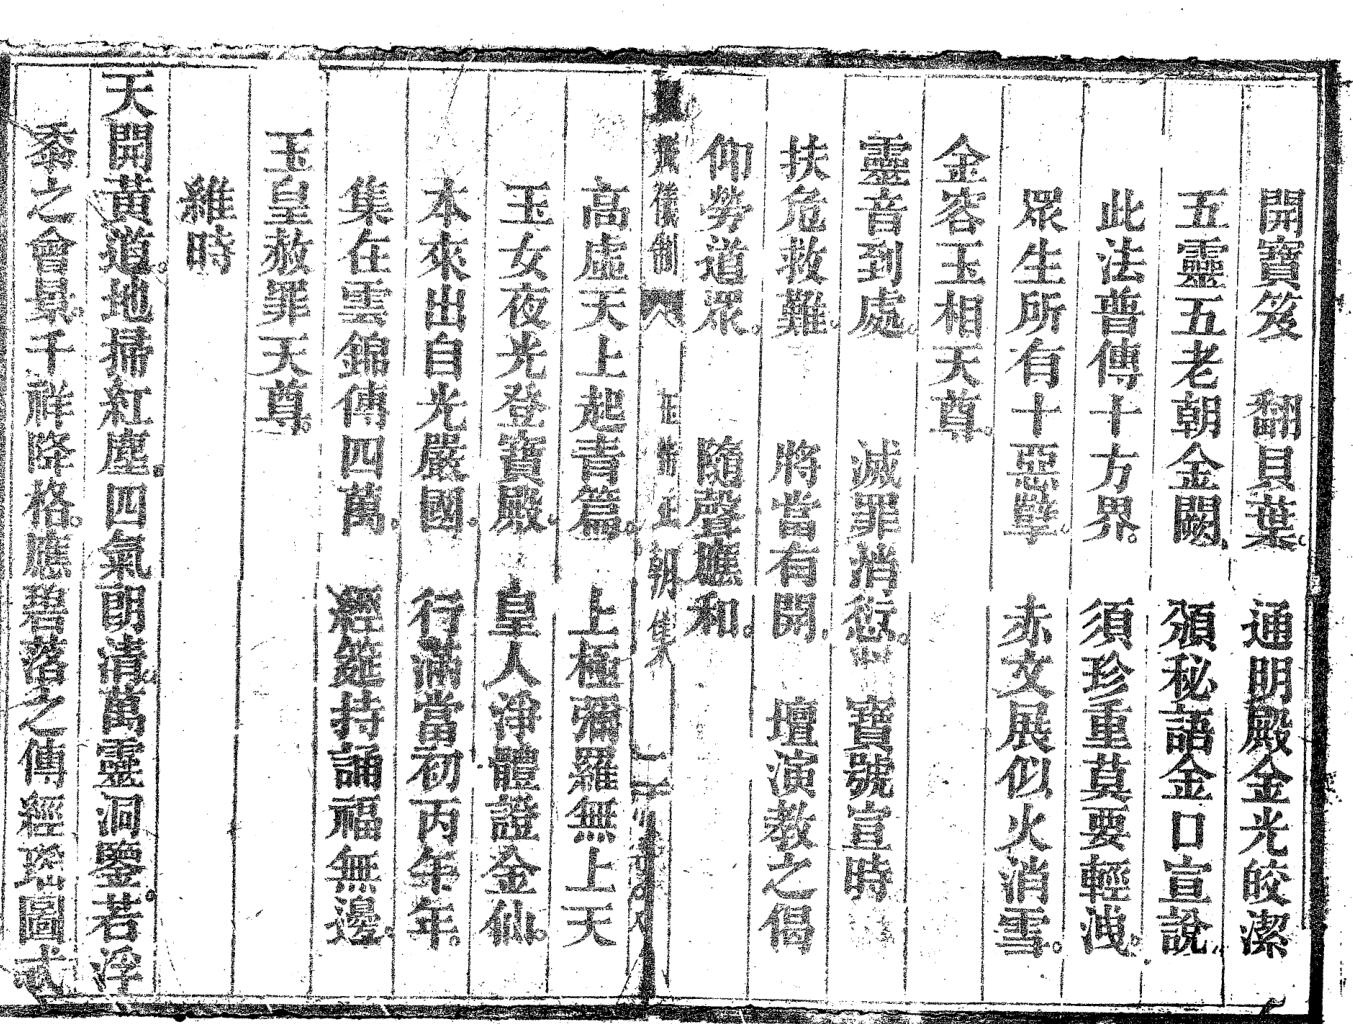 開寶笈　翻貝葉。通明殿金光皎潔
五靈五老朝金闕。頒秘語金口宣說。
此法普傳十方界。須珍重莫要輕洩。
眾生所有十惡孽。赤文展似火消雪。
金容玉相天尊。
靈音到處。滅罪消愆。寶號宣時
扶危救難。將當有開。壇演教之偈
仰勞道眾。隨聲應和。
儀制
朝
高虛天上起青篇。上極彌羅無上天
玉女夜光登寶殿。皇人淨體證金仙。
本來出自光嚴國。行滿當初丙午年。
集在雲錦傳四萬。經筵持誦福無邊。
玉皇赦罪天尊。
維時
天開黃道。地掃紅塵。四氣朗清。萬靈洞鑒。若浮
黍之會景。千祥降格。應碧落之傳經。瑤圖式